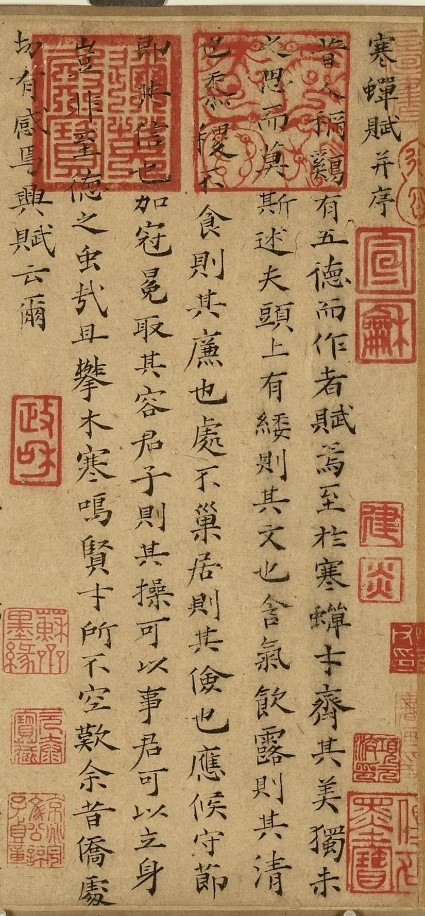 寒蟬賦并序
昔人稱鷄有五德而作者賦焉至扵寒蟬士齊其美獨未
之思而莫斯述夫頭上有緌則其文也含氣飲露則其清
也黍稷不食則其廉也處不巢居則其儉也應候守節
即其信也加冠冕取其容君子則其操可以事君可以立身
豈非至德之虫哉且攀木寒鳴賢士所不空歎余昔僑處
切有感焉興賦云爾
宣龢
建炎
政和